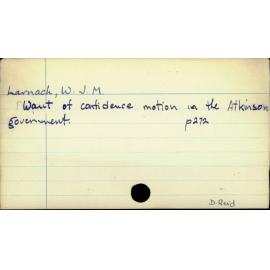 Larnach, W. J. M
Want of confidence motion in the Atkinson
government. p272
D. Reid